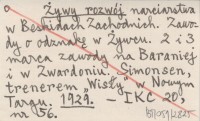 o Żywy rozwój narciarstwa
w Beskidach Zachodnich. Zawo-
dy o odznakę w Żywcu. 2 i 3
marca zawody na Baraniej
i w Zwardoniu. Simonsen,
trenerem "Wisły" w Nowym
Targu. 1929. — IKC 20,
nr 56.